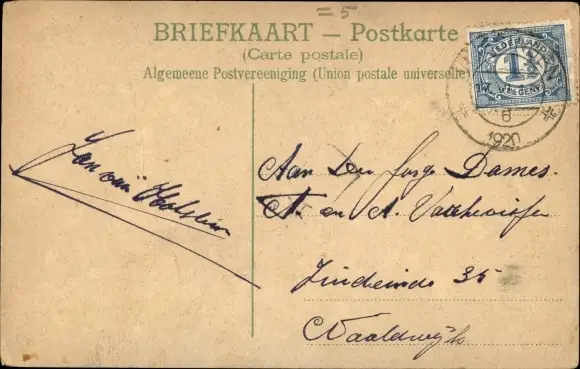 = 5
BRIEFKAART — Postkarte
(Carte postale)
Algemeene Postvereeniging (Union postale universelle)
NEDERLAND
1½
1½ CENT
6
1920
Jan van
Aan Den Jonge Dames
A. en A.
Zuideinde 35
Naaldwijk